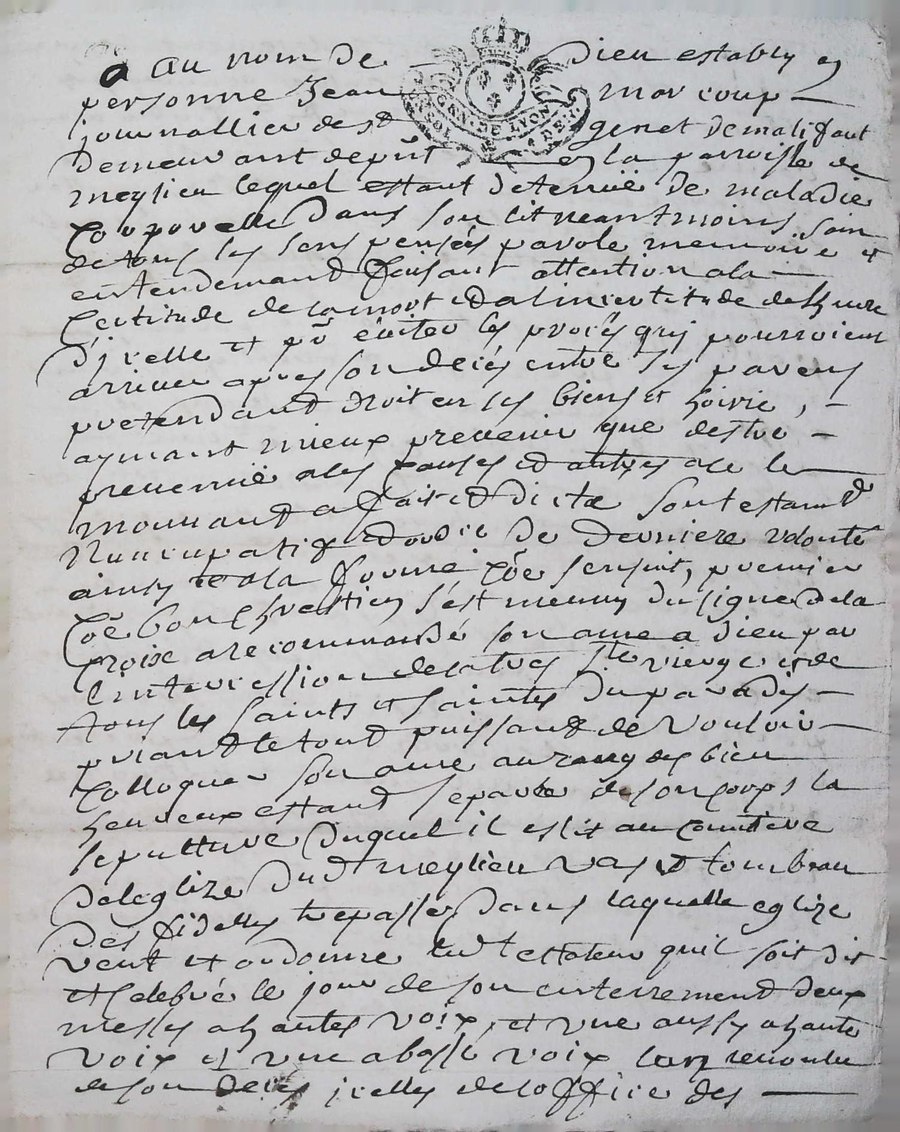 au nom de dieu estably en
personne Jean marcoup
journallier de st genet de malifaut
demeurant depnt en la parroisse de
meylieu lequel estant detenuë de maladie
corporelle dans son lit neantmoins sain
de tous les sens pensées parole memoire et
entendemand faisant attention a la
Certitude de la mort et a lincertitude de lheure
d'jcelle et pr éviter les procés quj pourroient
arriver apres son decés entre ses parens
pretendant droit en ses biens et hoirie,
aymant mieux prevenir que destre
prevenuë a ces causes et autres a ce le
mouvand a fait et dicté son testamt
Nuncupatif et ordre de derniere volonté
ainsy et a la forme Coe sensuit, premier
Coe bon Chrestien s'est meuny du signe de la
Croix a recommandé son ame a dieu par
l'intercession de la tres ste vierge et de
tous les saints et saintes du paradis
priand le tout puissand de vouloir
Colloquer son ame au rang des bien
heureux estand separée de son corps la
sepulture duquel il eslit au cimetiere
de leglize dudt meylieu vas et tombeau
des fidelles trepassés dans laquelle eglize
veut et ordonne ledt testateur quil soit dit
et Celebré le jour de son enterrement deux
messes a hautes voix, et une aussy a haute
voix et une a basse voix lan revolu
de son decés jcelles de loffice des
GEN. DE LYON